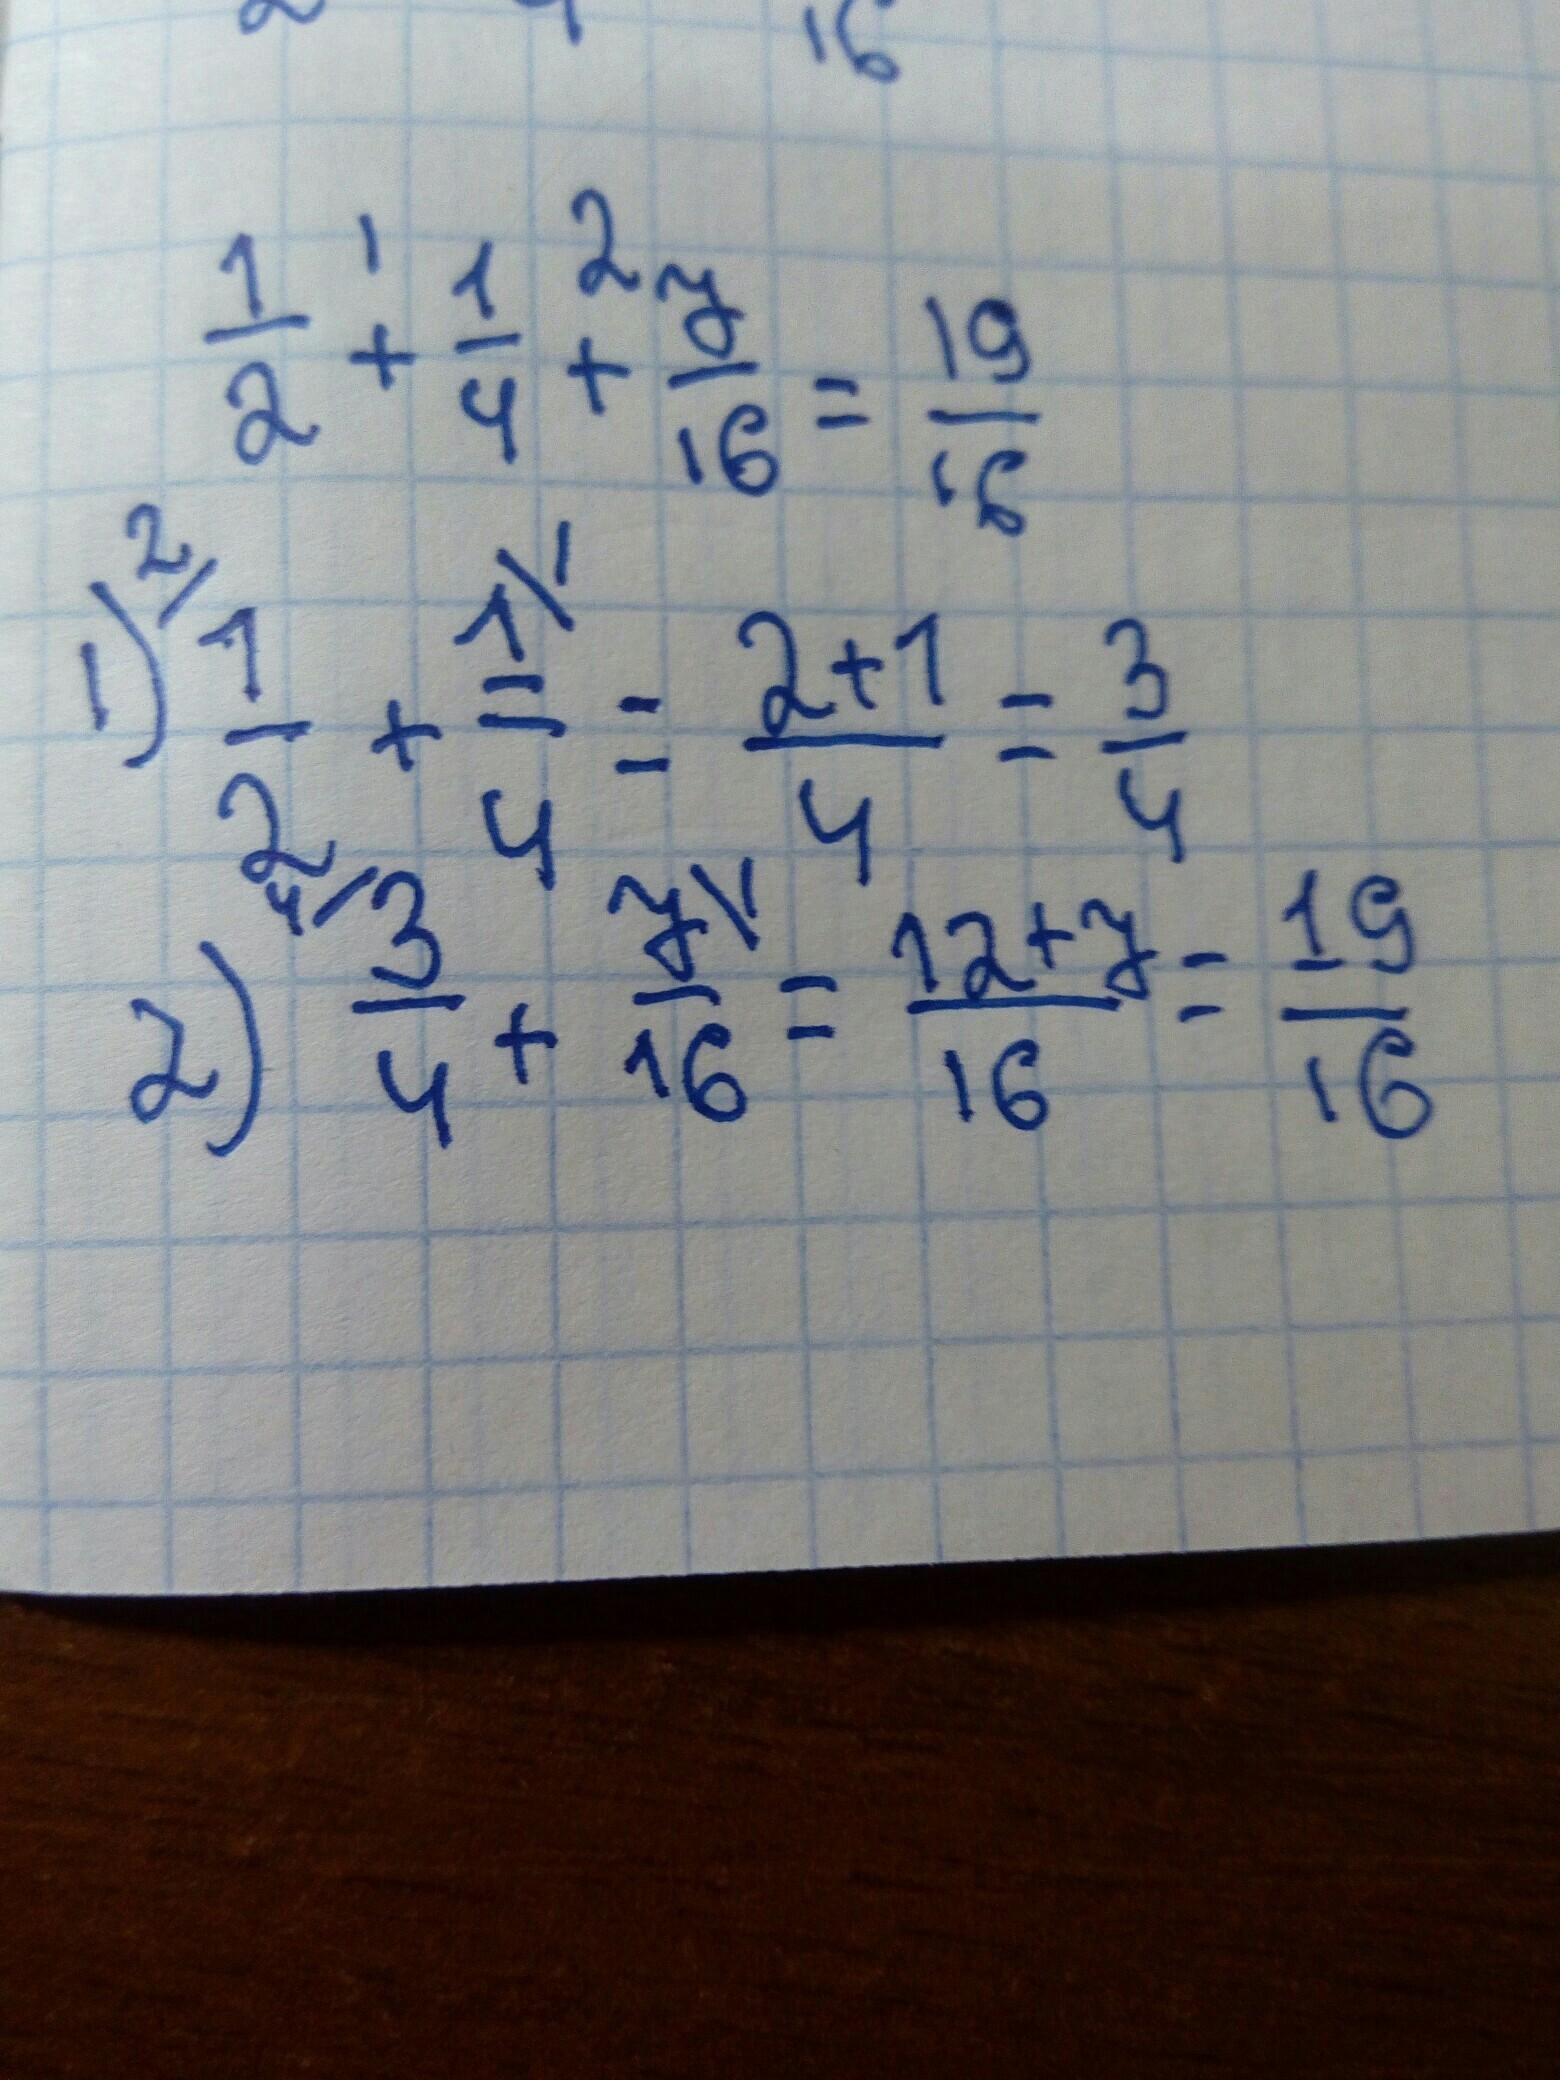 16
1/2 +¹ 1/4 +² 7/16 = 19/16
1) ²/1/2 + 1\¹/4 = 2+1/4 = 3/4
2) ⁴/3/4 + 7\¹/16 = 12+7/16 = 19/16